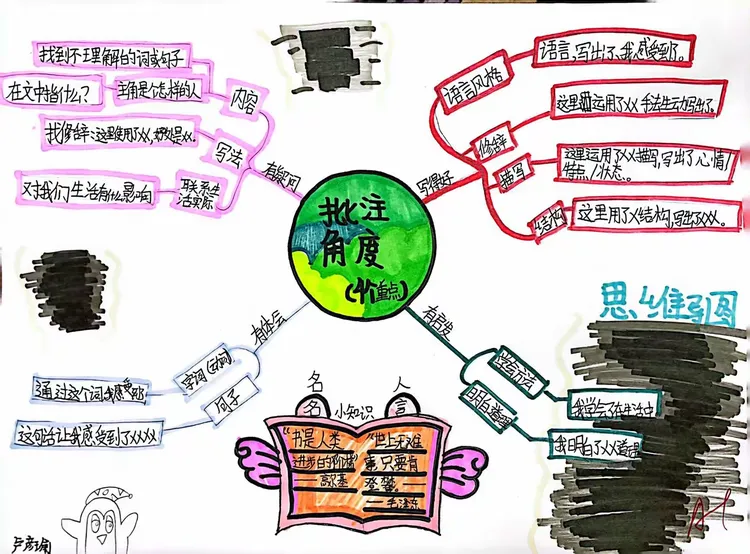 找到不理解的词或句子
在文中指什么?
主角是个怎样的人
内容
找修辞:这里使用了XX,好处是XX。
写法
对我们生活有什么影响
联系生
活实际
有疑问
批注
角度
(4个重点)
写得好
语言风格
语言,写出了、我感受到了。
修辞
这里运用了XX手法生动写出了。
描写
这里运用了XX描写,写出了心情/
特点/状态。
结构
这里用了X结构,写出了XX。
思维导图
有体会
字词
通过这个词我感受到
句子
这句话让我感受到了XXXX
有启发
学会方法
我学会了在生活中
明白道理
我明白了XX道理
名 人
名 小知识 言
"书是人类
进步的阶梯"
——高尔基
"世上无难
事只要肯
登攀"
——毛泽东
A+